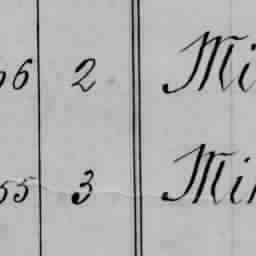 66 2 Mi
55 3 Mi